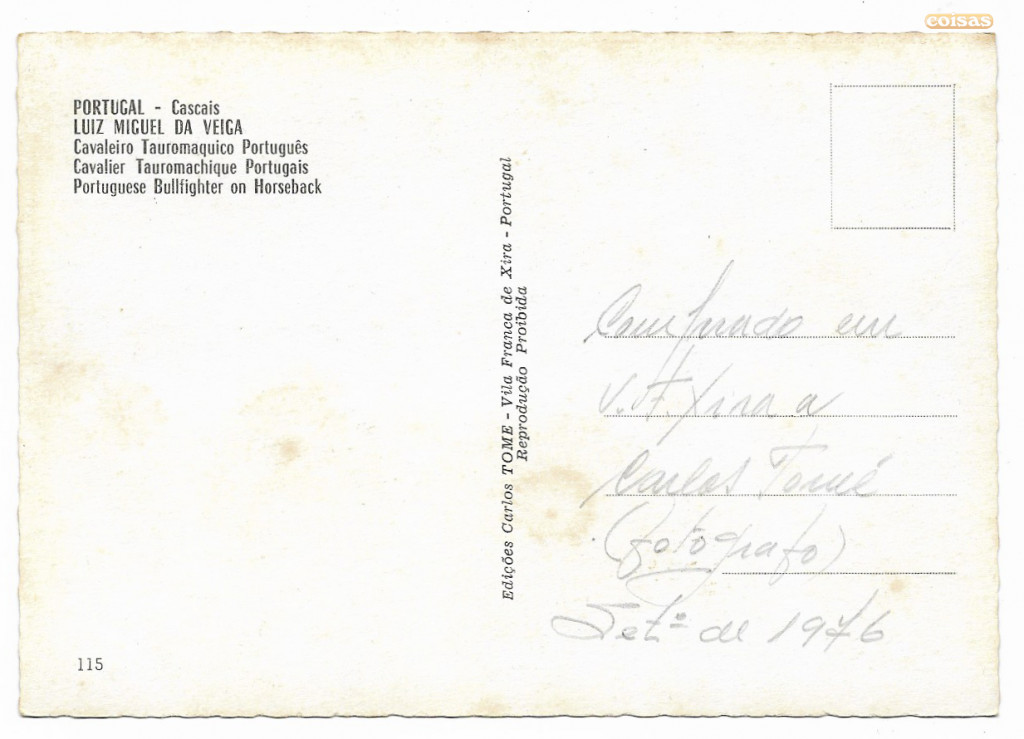 coisas
PORTUGAL - Cascais
LUIZ MIGUEL DA VEIGA
Cavaleiro Tauromaquico Português
Cavalier Tauromachique Portugais
Portuguese Bullfighter on Horseback
Edições Carlos TOME - Vila Franca de Xira - Portugal
Reprodução Proibida
Comprado em
V. F. Xira a
Carlos Tomé
(fotografo)
Setº de 1976
115